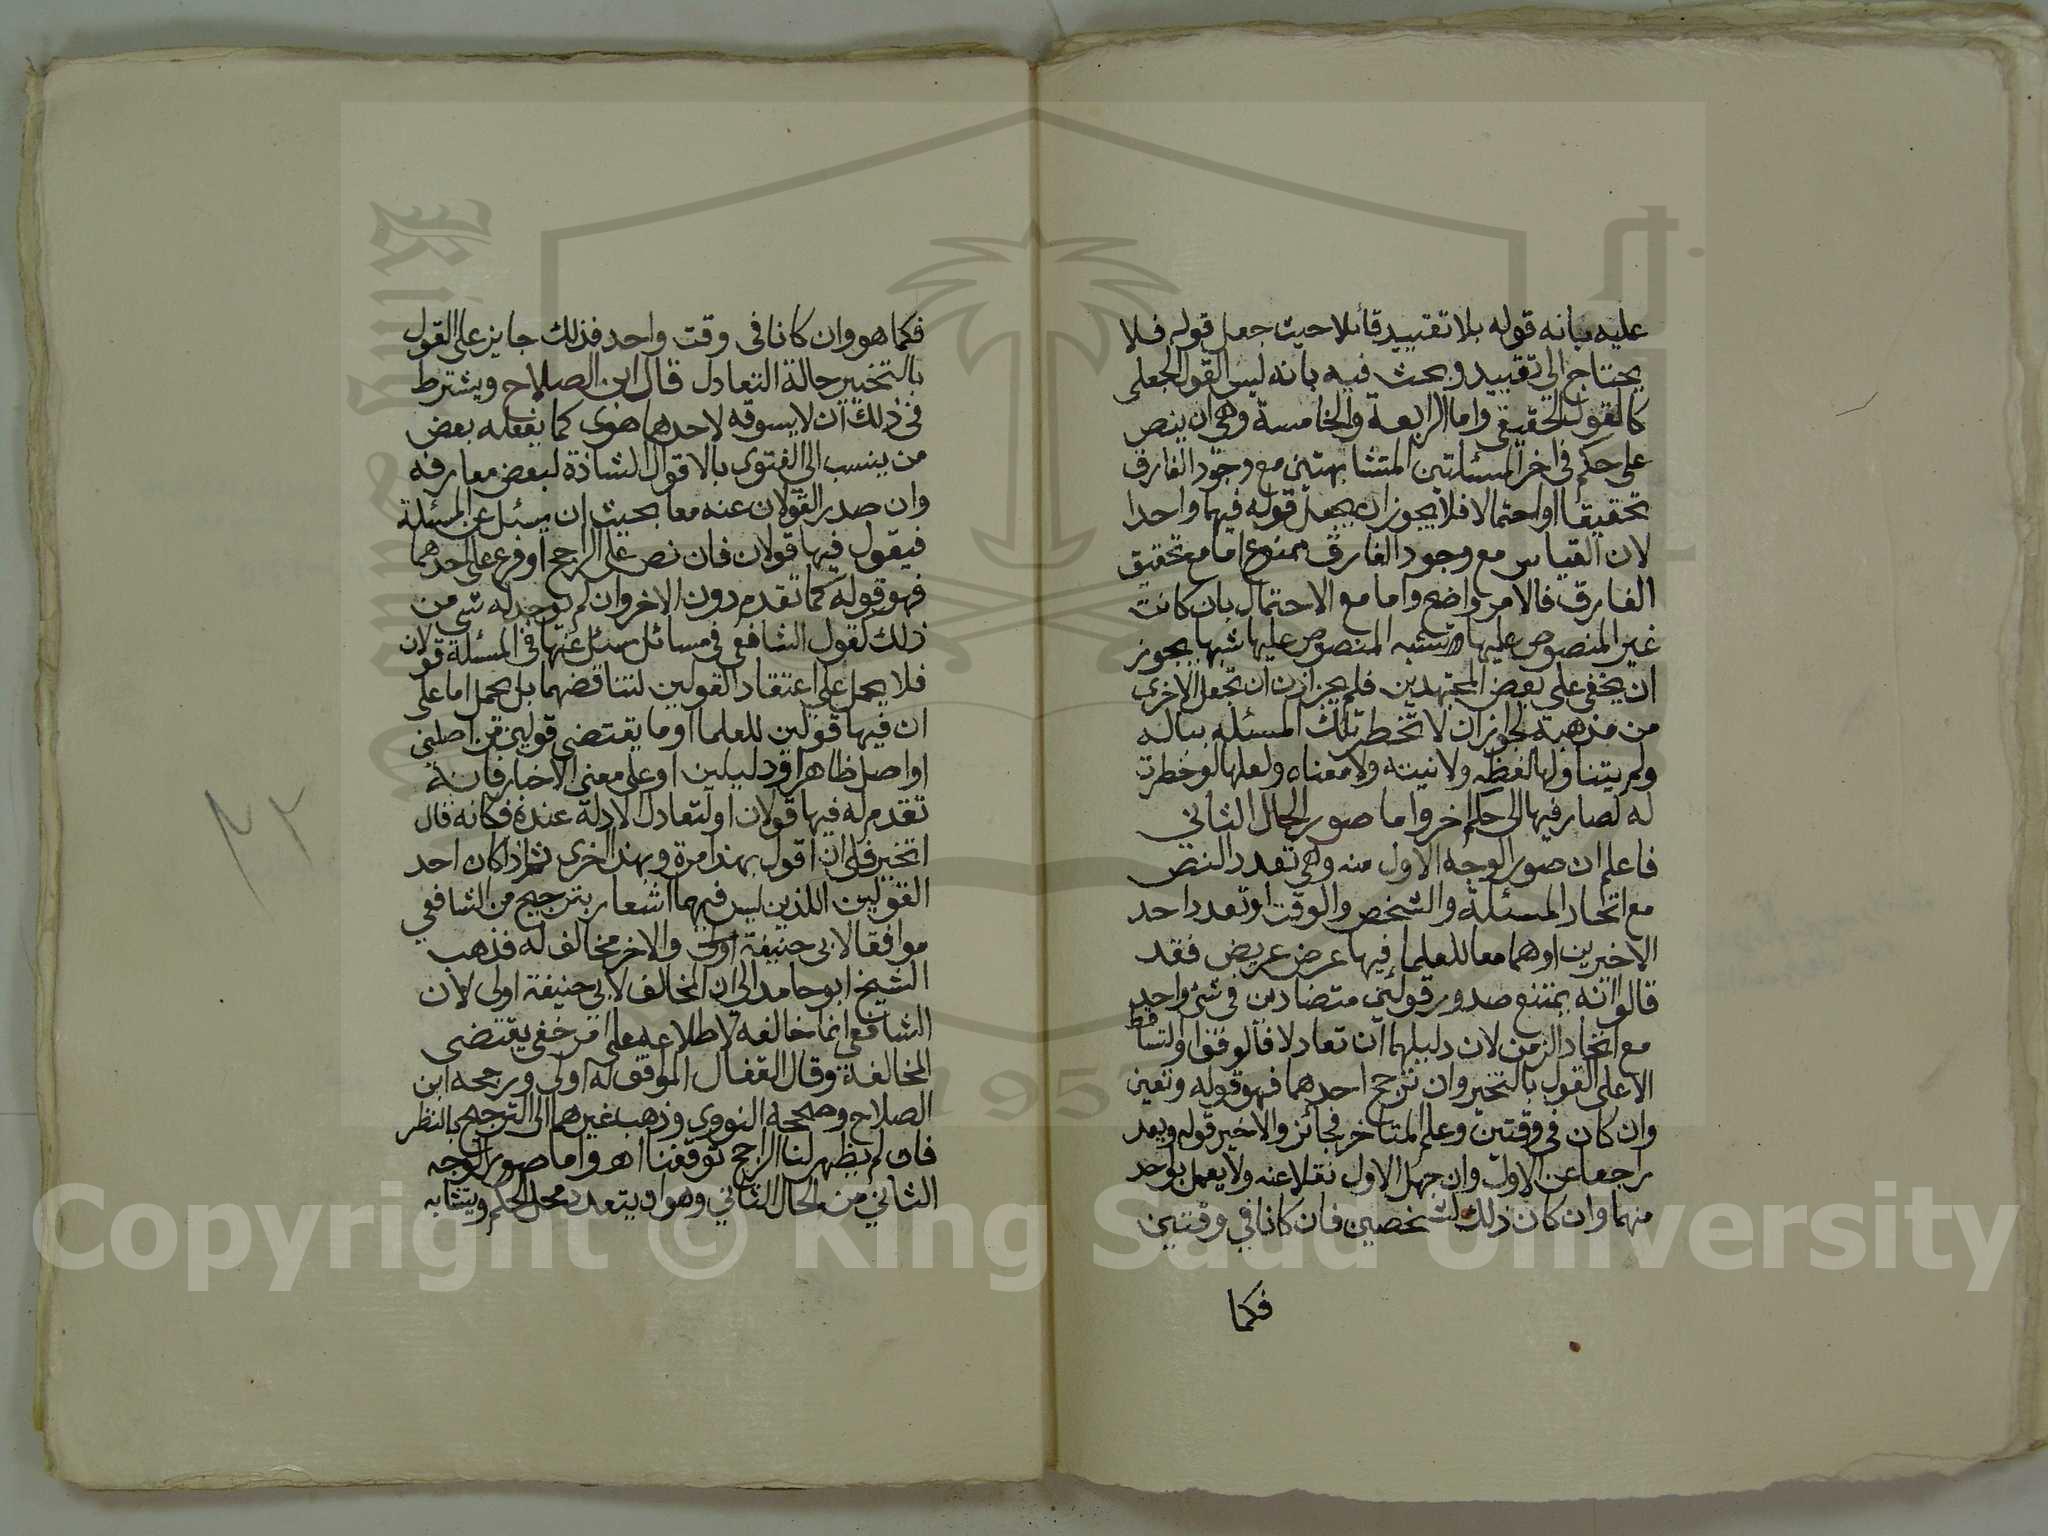 عليه بانه قوله بلا تقييد قائلا حيث جعل قوله فلا
يحتاج الى تقييد وبحث فيه بانه ليس القول الجعلى
كالقول الحقيقى واما الرابعة والخامسة وهى ان ينص
على حكم فى اخر المسئلتين المتشابهتين مع وجود الفارق
تحقيقا او احتمالا فلا يجوز ان يجعل قوله فيهما واحدا
لان القياس مع وجود الفارق ممنوع اما مع تحقيق
الفارق فالامر واضح واما مع الاحتمال بان كانت
غير المنصوص عليها تشبه المنصوص عليها شبها يجوز
ان يخفى على بعض المجتهدين فلم يجز اذن ان تجعل الاخرى
من مذهبه لجواز ان لا تخطر تلك المسئلة بباله
ولم يتناولها لفظه ولا نيته ولا معناه ولعلها لو خطرت
له لصار فيها الى حكم اخر واما صور الحال الثانى
فاعلم ان صور الوجه الاول منه وهى تعدد النص
مع اتحاد المسئلة والشخص والوقت او تعدد احد
الاخيرين او هما معا للعلماء فيها عرض عريض فقد
قالوا انه يمتنع صدور قولين متضادين فى شئ واحد
مع اتحاد الزمن لان دليلهما ان تعادلا فالوقف او التساقط
الا على القول بالتخير وان ترجح احدهما فهو قوله وتعين
وان كان فى وقتين وعلم المتاخر فجائز والاخير قوله ويعد
راجعا عن الاول وان جهل الاول نقلا عنه ولا يعمل بواحد
منهما وان كان ذلك لشخصين فان كانا فى وقتين
فكما
فكما هو وان كانا فى وقت واحد فذلك جايز على القول
بالتخيير حالة التعادل قال ابن الصلاح ويشترط
فى ذلك ان لا يسوقه لاحدهما هوى كما يفعله بعض
من ينسب الى الفتوى بالاقوال الشاذة لبعض معارفه
وان صدر القولان عنه معا بحيث ان يسئل عن المسئلة
فيقول فيها قولان فان نص على الراجح او فرع على احدهما
فهو قوله كما تقدم دون الاخر وان لم يوجد له شى من
ذلك كقول الشافعى فى مسائل سئل عنها فى المسئلة قولان
فلا يحمل على اعتقاد القولين لتناقضهما بل يحمل اما على
ان فيها قولين للعلما او ما يقتضى قولين من اصلين
او اصل ظاهر او دليلين او على معنى الاخبار فانه
تقدم له فيها قولان او لتعادل الادلة عنده فكانه قال
اتخير فلى ان اقول بهذا مرة وبهذا اخرى ثم اذا كان احد
القولين اللذين ليس فيهما اشعار بترجيح من الشافعي
موافقا لابى حنيفة اولى والاخر مخالف له فذهب
الشيخ ابو حامد الى ان المخالف لابى حنيفة اولى لان
الشافعي انما خالفه لاطلاعه على امر خفى يقتضى
المخالفة وقال القفال الموافق له اولى ورجحه ابن
الصلاح وصححه النووى وذهب غيرهما الى الترجيح بالنظر
فان لم يظهر لنا الراجح توقفنا اهـ واما صور الوجه
الثاني من الحال الثاني وهو ان يتعدد محل الحكم ويتشابه
٢٢
Copyright © King Saud University
King Saud
1957